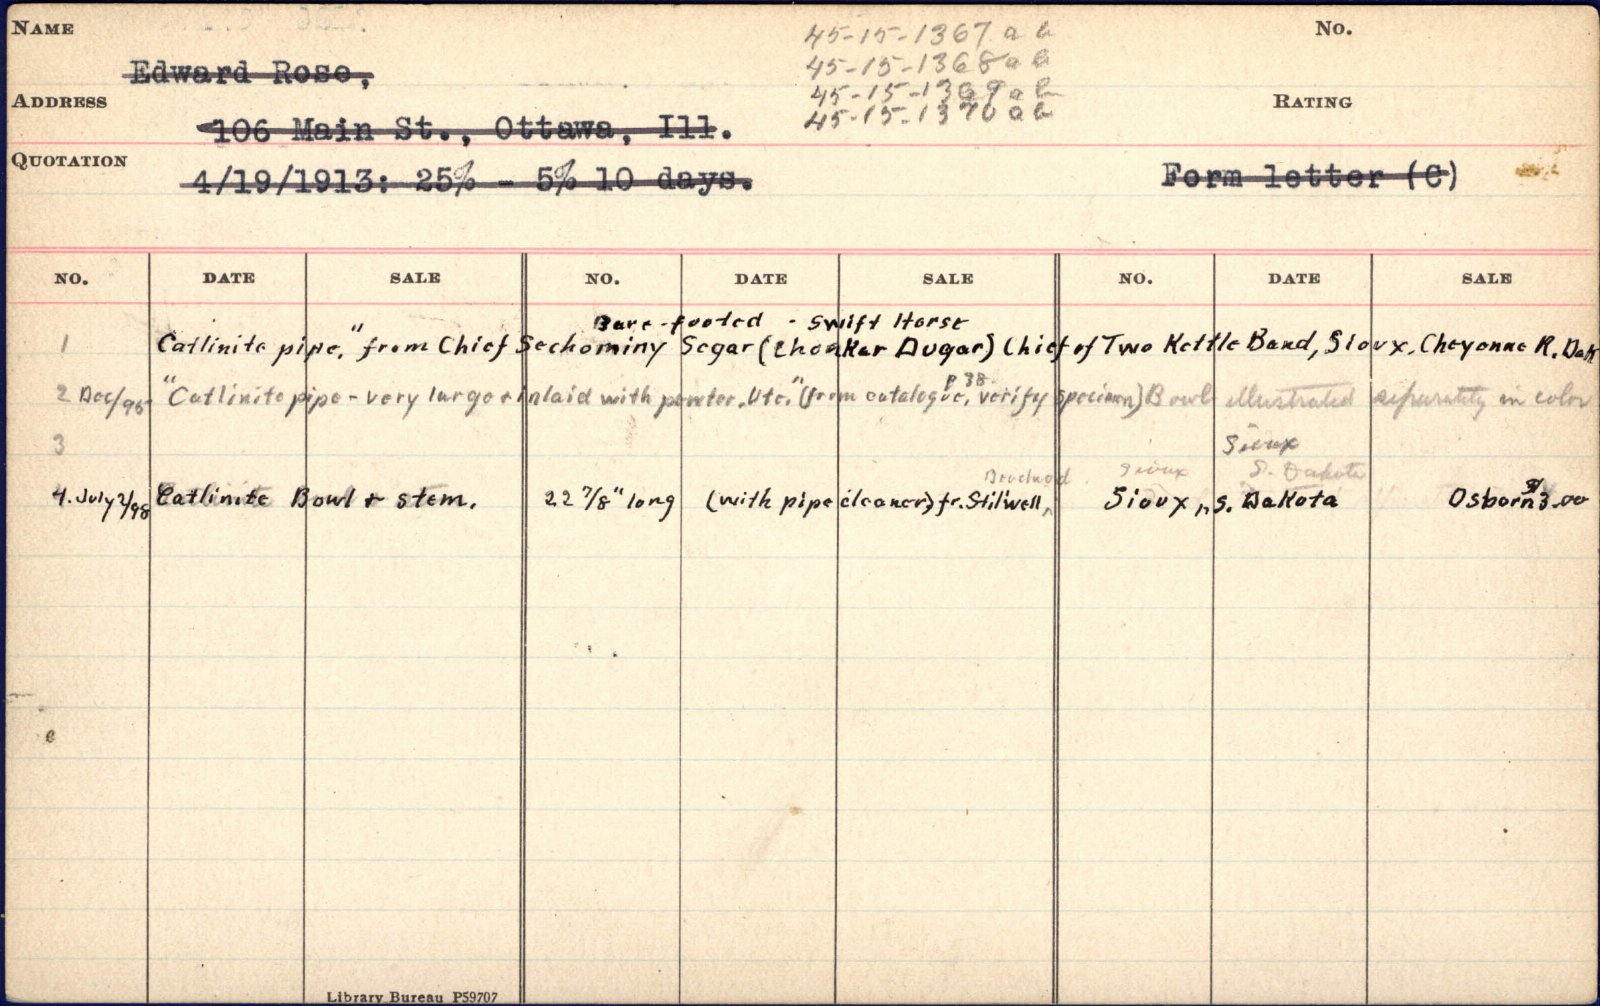 NAME
45-15-1367 a b
No.
Edward Rose,
45-15-1368 a b
ADDRESS
45-15-1369 a b
RATING
106 Main St., Ottawa, Ill.
45-15-1370 a b
QUOTATION
4/19/1913: 25% - 5% 10 days.
Form letter (C)
NO. DATE SALE NO. DATE SALE NO. DATE SALE
Bare-footed - Swift Horse
1 Catlinite pipe," from Chief Sechominy Segar (Chonkar Dugar) Chief of Two Kettle Band, Sioux, Cheyenne R. Dak
p 38.
2 Dec/95 "Catlinite pipe - very large + inlaid with pewter. Ute." (from catalogue, verify specimen) Bowl illustrated separately in color
3 Sioux
Sioux S. Dakota
4. July 2/98 Catlinite Bowl + stem. 22 7/8" long (with pipe cleaner) fr. Stilwell, Sioux, S. Dakota Osborn 3.00
Library Bureau P59707